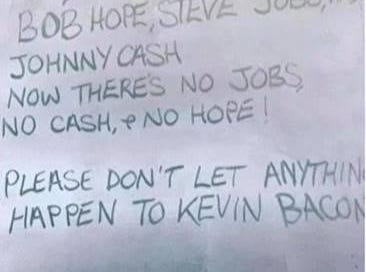 BOB HOPE, STEVE JOBS,
JOHNNY CASH
NOW THERE'S NO JOBS,
NO CASH, & NO HOPE!
PLEASE DON'T LET ANYTHIN
HAPPEN TO KEVIN BACON